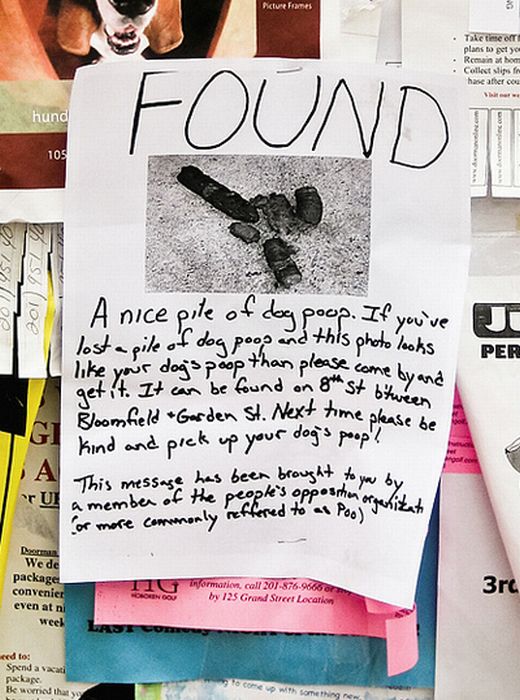 Picture Frames
hund
105
FOUND
A nice pile of dog poop. If you've
lost a pile of dog poop and this photo looks
like your dog's poop than please come by and
get it. It can be found on 8th St between
Bloomfield + Garden St. Next time please be
kind and pick up your dog's poop!
This message has been brought to you by
a member of the people's opposition organizati
(or more commonly reffered to as Poo)
Take time off f
plans to get yo
Remain at hom
Collect slips fr
hase after cou
Visit our we
www.doormanonline.com
PER
3rd
HG
HOBOKEN GOLF
information, call 201-876-9666 or
by 125 Grand Street Location
Doorman
We de
package
convenien
even at ni
week
eed to:
Spend a vacati
package.
Be worried that yo
to come up with something new.